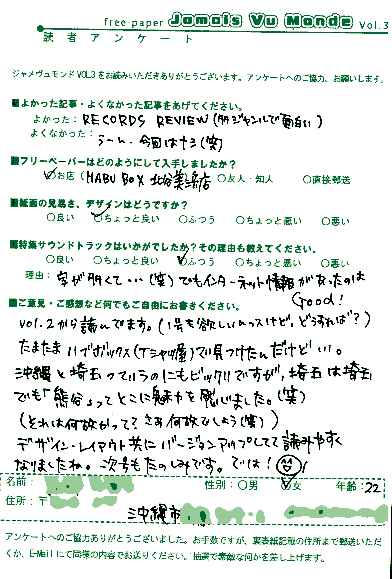 free-paper Jamais Vu Monde Vol.3
読者アンケート
ジャメヴュモンドVOL.3をお読みいただきありがとうございます。アンケートへのご協力、お願いします。
■よかった記事・よくなかった記事をあげてください。
よかった: RECORDS REVIEW(多ジャンルで面白い)
よくなかった: うーん、今回はナシ(笑)
■フリーペーパーはどのようにして入手しましたか?
○お店(HABU BOX 北谷美浜店 ○友人・知人 ○直接郵送
■紙面の見易さ、デザインはどうですか?
○良い ○ちょっと良い ○ふつう ○ちょっと悪い ○悪い
■特集サウンドトラックはいかがでしたか?その理由も教えてください。
○良い ○ちょっと良い ○ふつう ○ちょっと悪い ○悪い
理由: 字が多くて…(笑)でもインターネット情報があったのは
Good!
■ご意見・ご感想など何でもご自由にお書きください。
vol.2から読んでます。(1号も欲しいんっスけど、どうすれば?)
たまたまハブボックス(Tシャツ屋)で見つけたんだけど…。
沖縄と埼玉っていうのにもビックリですが、埼玉は埼玉
でも「熊谷」ってとこに魅力を感じました。(笑)
(それは何故かって?さあ何故でしょう(笑))
デザイン・レイアウト共にバージョンアップしてて読みやすく
なりましたね。次号もたのしみです。では!
名前: 性別:○男 ○女 年齢:22
住所:〒
沖縄市
アンケートへのご協力ありがとうございました。お手数ですが、裏表紙記載の住所まで郵送いただ
くか、E-Mailにて同様の内容でお送りください。抽選で素敵な何かを差し上げます。